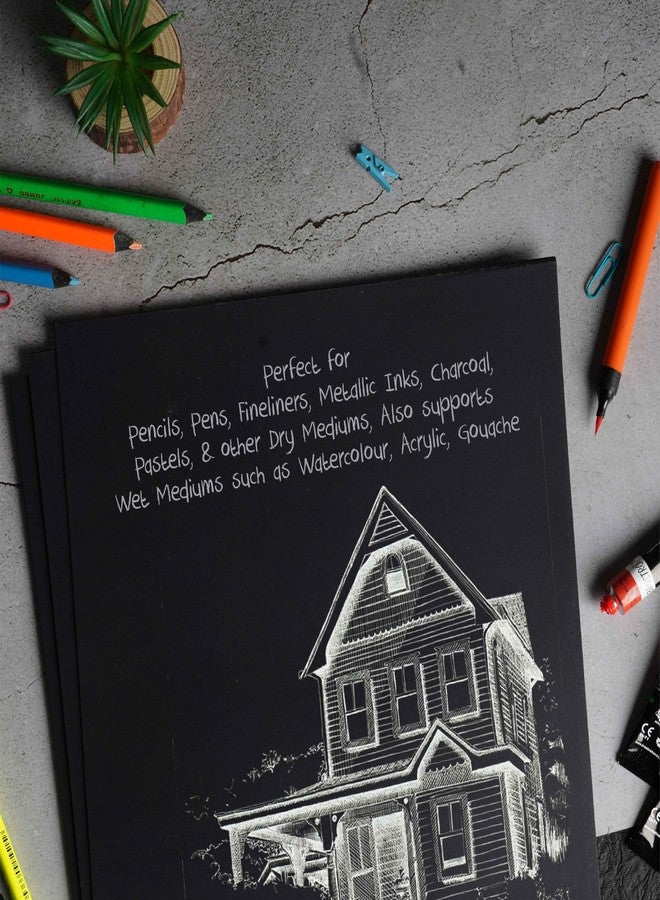 Perfect for
Pencils, Pens, Fineliners, Metallic Inks, Charcoal,
Pastels, & other Dry Mediums, Also supports
Wet Mediums such as Watercolour, Acrylic, Gouache
JUMBO
CE